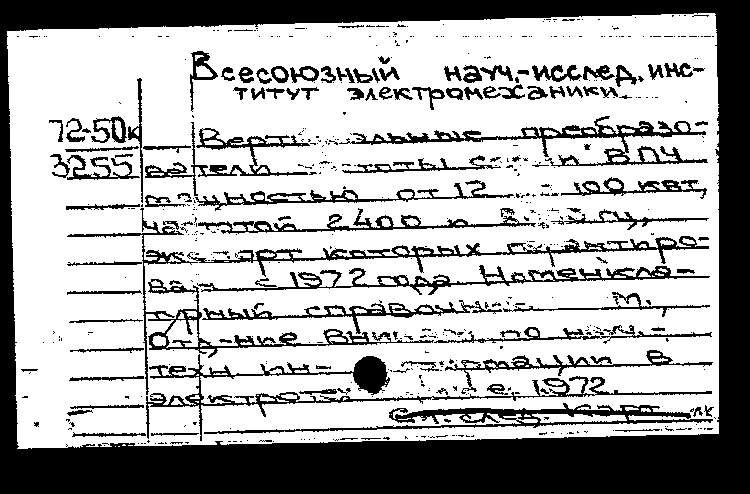 Всесоюзный науч.-исслед. инс-
титут электромеханики.
72-50к
3255
преобразо-
ватели частоты серии ВПЧ
мощностью от 12 100 квт,
частотой 2400 и гц,
экспорт которых гарантиро-
ван с 1972 года. Номенкла-
турный справочник. М.,
Отд-ние по науч.-
техн. ин- формации в
1972.
См. след. карт.